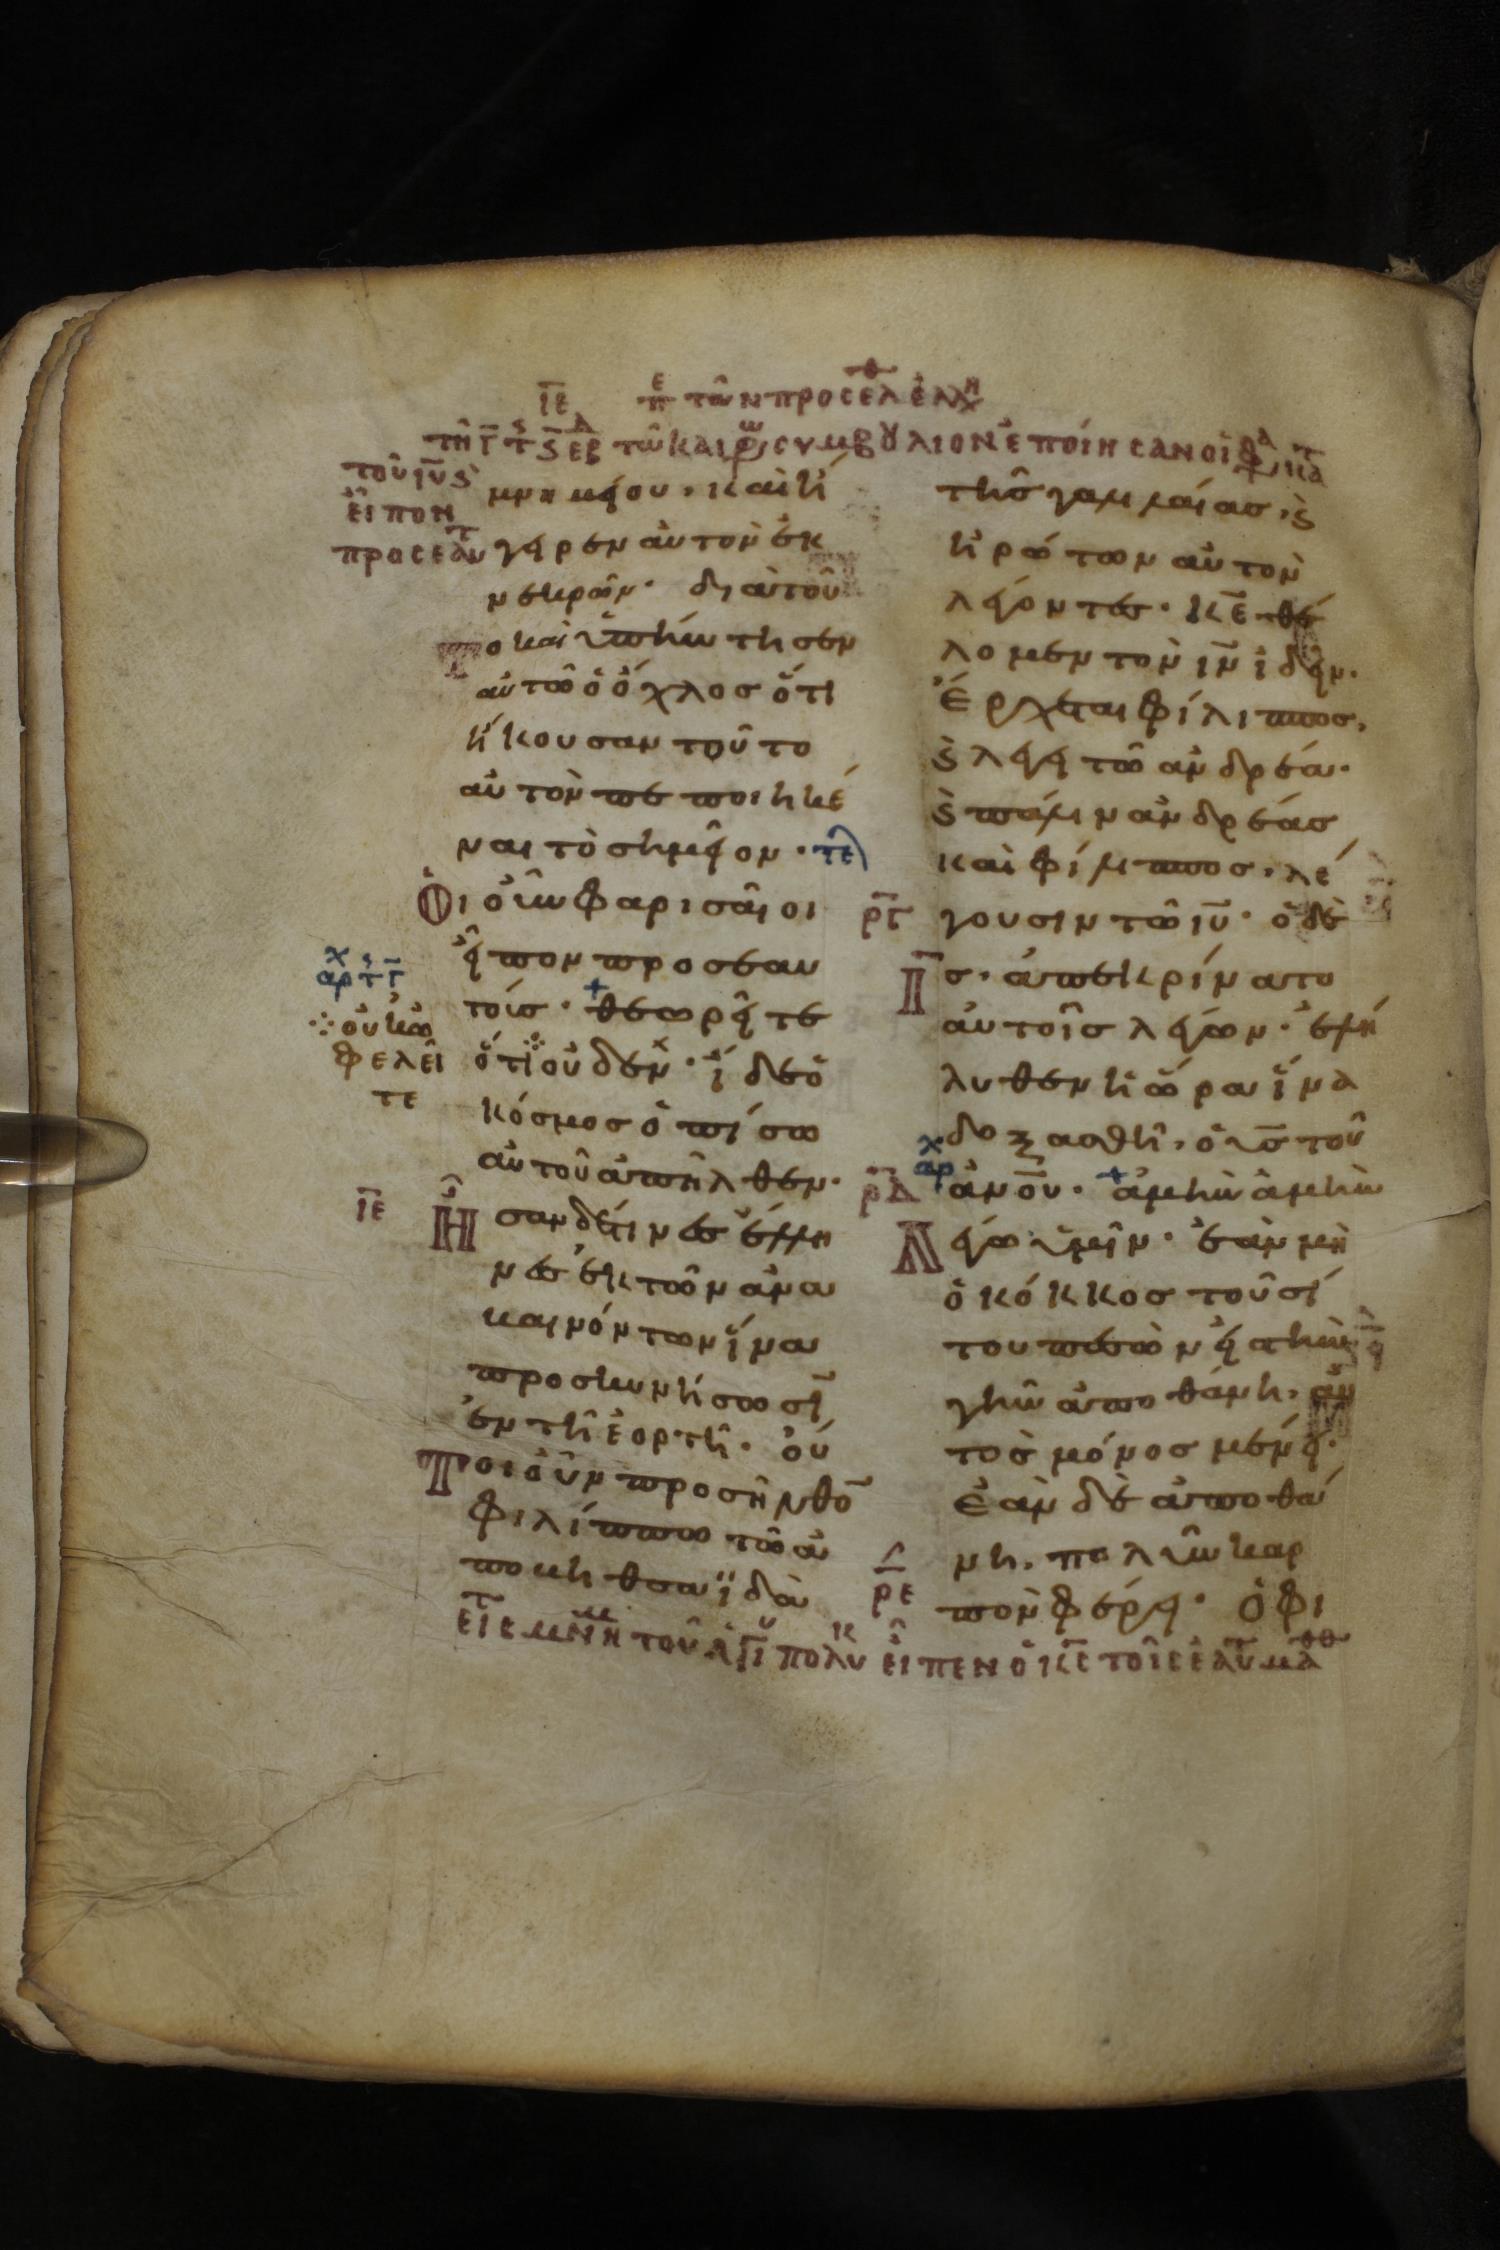 ιε ε π τῶν προσελ θ ἑλλ η
τῆ γ τ ς εβ τῶ καιρῶ συμβούλιον ἐποίησαν οἱ φα κατ
τοῦ ιυ ς
εἶπον
προς εαυτ
μνημείου, καὶ ἤ
γειρεν αὐτὸν ἐκ
νεκρῶν. διατοῦ
Το καὶ ὑπήντησεν
αὐτῶ ὁ ὄχλος ὅτι
ἤκουσαν τοῦτο
αὐτὸν πεποιηκέ
ναι τὸ σημεῖον. τε
Οἱ οὖν φαρισαῖοι
εἶπον προσεαυ
αρχ τ γ
τοίς. + θεωρεῖτε
οὐκ ὠ
φελεῖ
τε
ὅτι οὐδεν. ἴδε ὁ
κόσμος ὀπίσω
αὐτοῦ ἀπῆλθεν.
ιε
Ἦσαν δέ τινες ἕλλη
νες ἐκ τῶν ἀνα
βαινόντων ἵνα
προσκυνήσωσι
ἐν τῆ ἑορτῆ. οὗ
Τοι οὖν προσῆλθο
φιλίππω τῶ ἀ
πο βηθσαϊδὰ
τῆς γαλιλαίας, ς
ἠρώτων αὐτὸν
λέγοντες. κε θέ
λομεν τὸν ιν ἰδεῖν.
Ἔρχεται φίλιππος,
ς λέγει τῶ ἀνδρέα.
ς πάλιν ἀνδρέας
καὶ φίλιππος, λέ
ργ
γουσιν τῶ ιυ. ὁ δὲ
Ις, ἀπεκρίνατο
αὐτοῖς λέγων. ἐλή
λυθεν ἡ ὥρα ἵνα
δοξασθῆ, ὁ υς τοῦ
αρχ
ρδ
ανου. + ἀμὴν ἀμὴν
Λέγω ὑμῖν. ἐὰν μὴ
ὁ κόκκος τοῦ σί
του πεσὼν εἰς τὴν
γῆν ἀποθάνη, αὐ
τὸς μόνος μένει.
Ἐὰν δὲ ἀποθά
νη, πολὺν καρ
ρε
πὸν φέρει. ὁ φι
εἰς μνημ τοῦ ἁγι πολυκ εἶπεν ὁ κς τοῖς ἑαυτ μαθθ